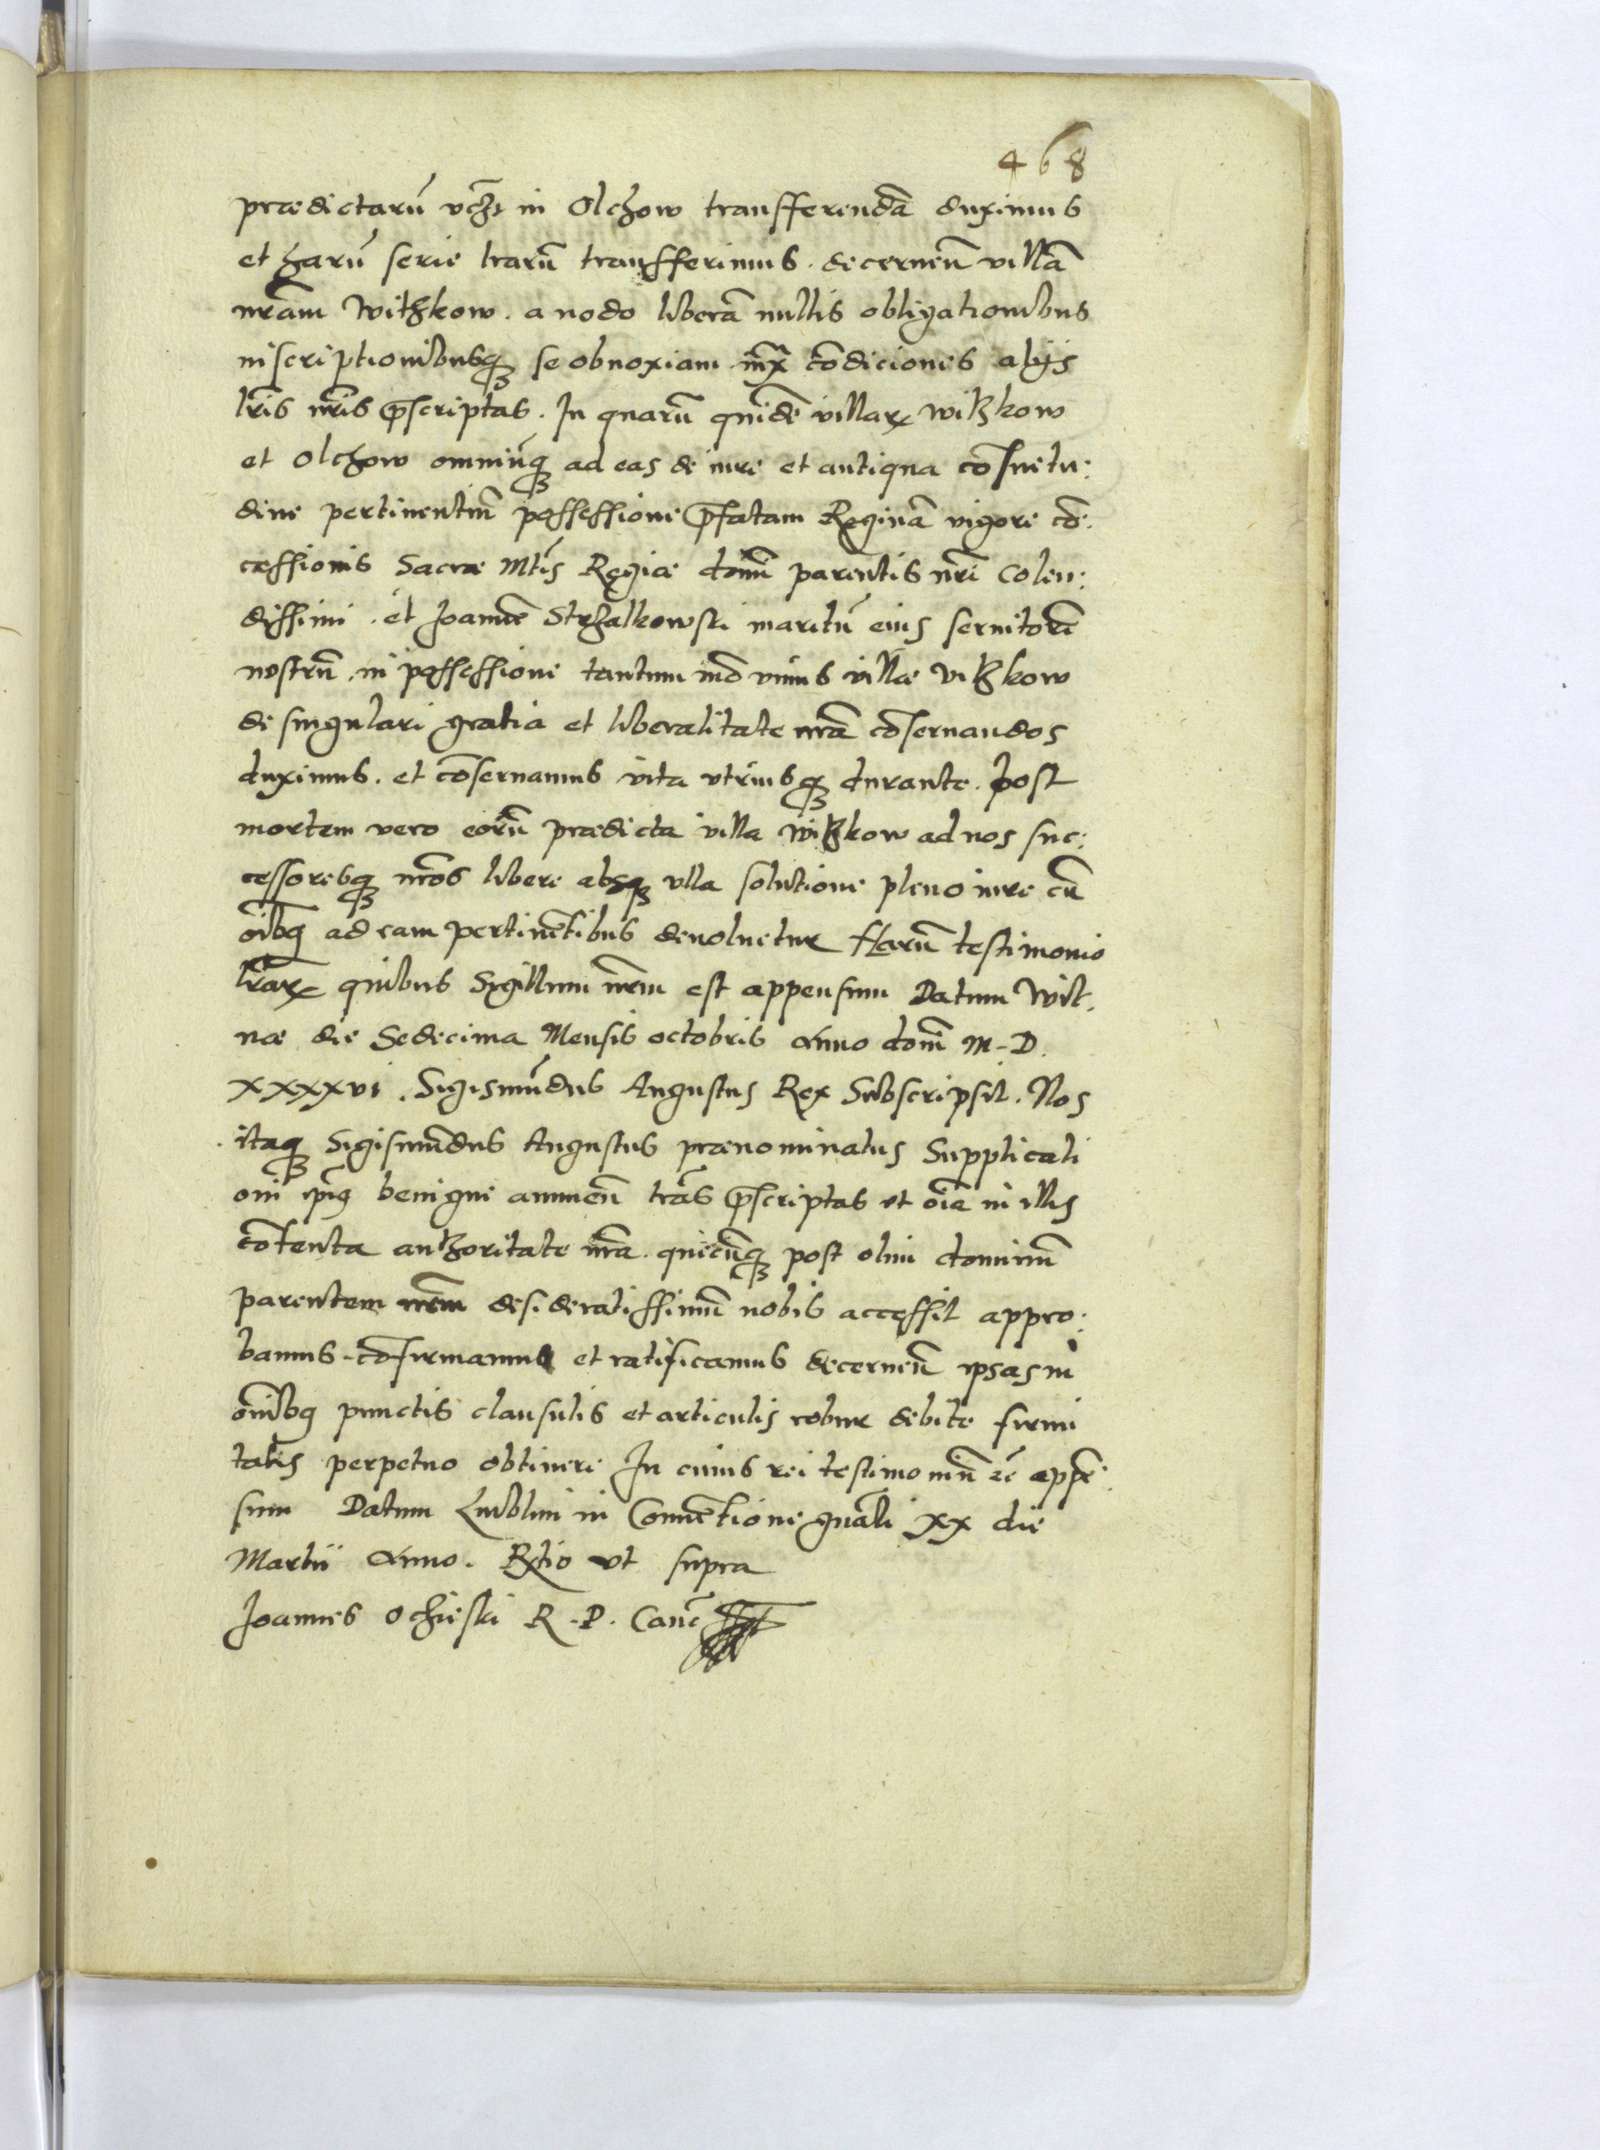 468
prædictarũ vcʒt in Olchow transfferendã duximus
et harũ serie lrarũ transfferimus. decerneñ villã
nrãm Withkow. a nodo liberã nullis obligationibus
inscriptionibusqꝫ se obnoxiam condiciones alijs
lris nris pscriptas. In quarũ quidẽ villarꝝ witzkow
et Olchow omniũqꝫ ad eas de iure et antiqua cõsuetu:
dine pertinentiũ possessione pfatam Reginã vigore cõ:
cæssionis Sacræ Mtis Regiæ domi parentis nri Colen:
dissimi. et Joannẽ Strzalkowski maritũ eius seruitorẽ
nostrũ. in possessione tantum mõ vnius villæ Vitzkow
de singulari gratia et liberalitate nrã cõseruandos
duximus. et cõseruamus vita vtriusqꝫ durante. Post
mortem vero eorũ prædicta villa Witzkow ad nos suc:
cessoresqꝫ nrõs libere absqꝫ vlla solutione pleno iure cũ
oĩbq ad eam pertinẽtibus deuoluetur Harũ testimonio
lrarꝝ quibus Sigillum nrm est appensum Datum Wil:
næ die Sedecima Mensis octobris Anno domi M-D.
XXXXVI. Sigismũdus Augustus Rex Subscripsit. Nos
itaqꝫ Sigismũdus Augustus prænominatus Supplicati
oni benigne annueñ lrãs pscriptas et oĩa in illis
cõtenta authoritate nrã. quicũqꝫ post olim dominũ
parentem nrẽm desideratissimũ nobis accessit appro:
bamus-cõfirmamus et ratificamus decerneñ ipsas in
omĩbq punctis clausulis et articulis robur debite firmi
tatis perpetuo obtinere In cuius rei testimoniũ ēc appẽ:
sum Datum Lublini in Conuẽtione gnãli XX die
Martii Anno. Rltio vt supra
Joannes Ochieski R.P. Canc̃